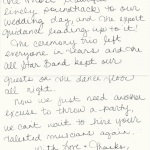 lively soundtracks to our
wedding day, and the expert
guidance leading up to it!
The ceremony trio left
everyone in tears and the
All Star Band kept our
guests on the dance floor
all night.
Now we just need another
excuse to throw a party,
we can't wait to hire your
talented musicians again.
With love + Thanks,